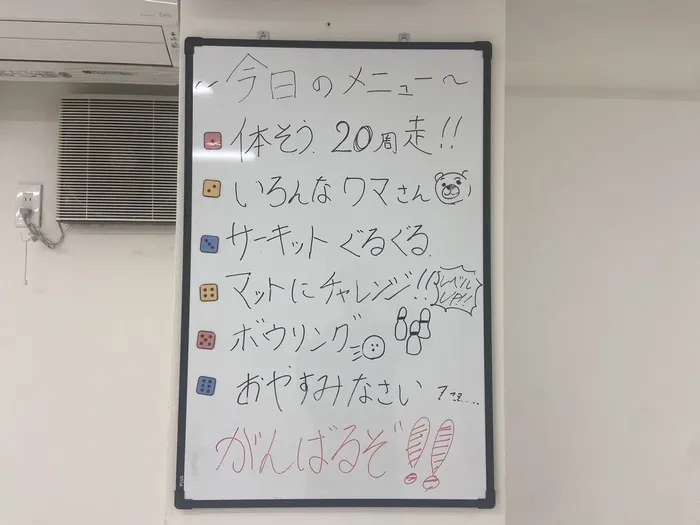 ～今日のメニュー～
体そう 20周走!!
いろんなクマさん
サーキットぐるぐる
マットにチャレンジ!! レベルUP!!
ボウリング
おやすみなさい
がんばるぞ!!
PLUS